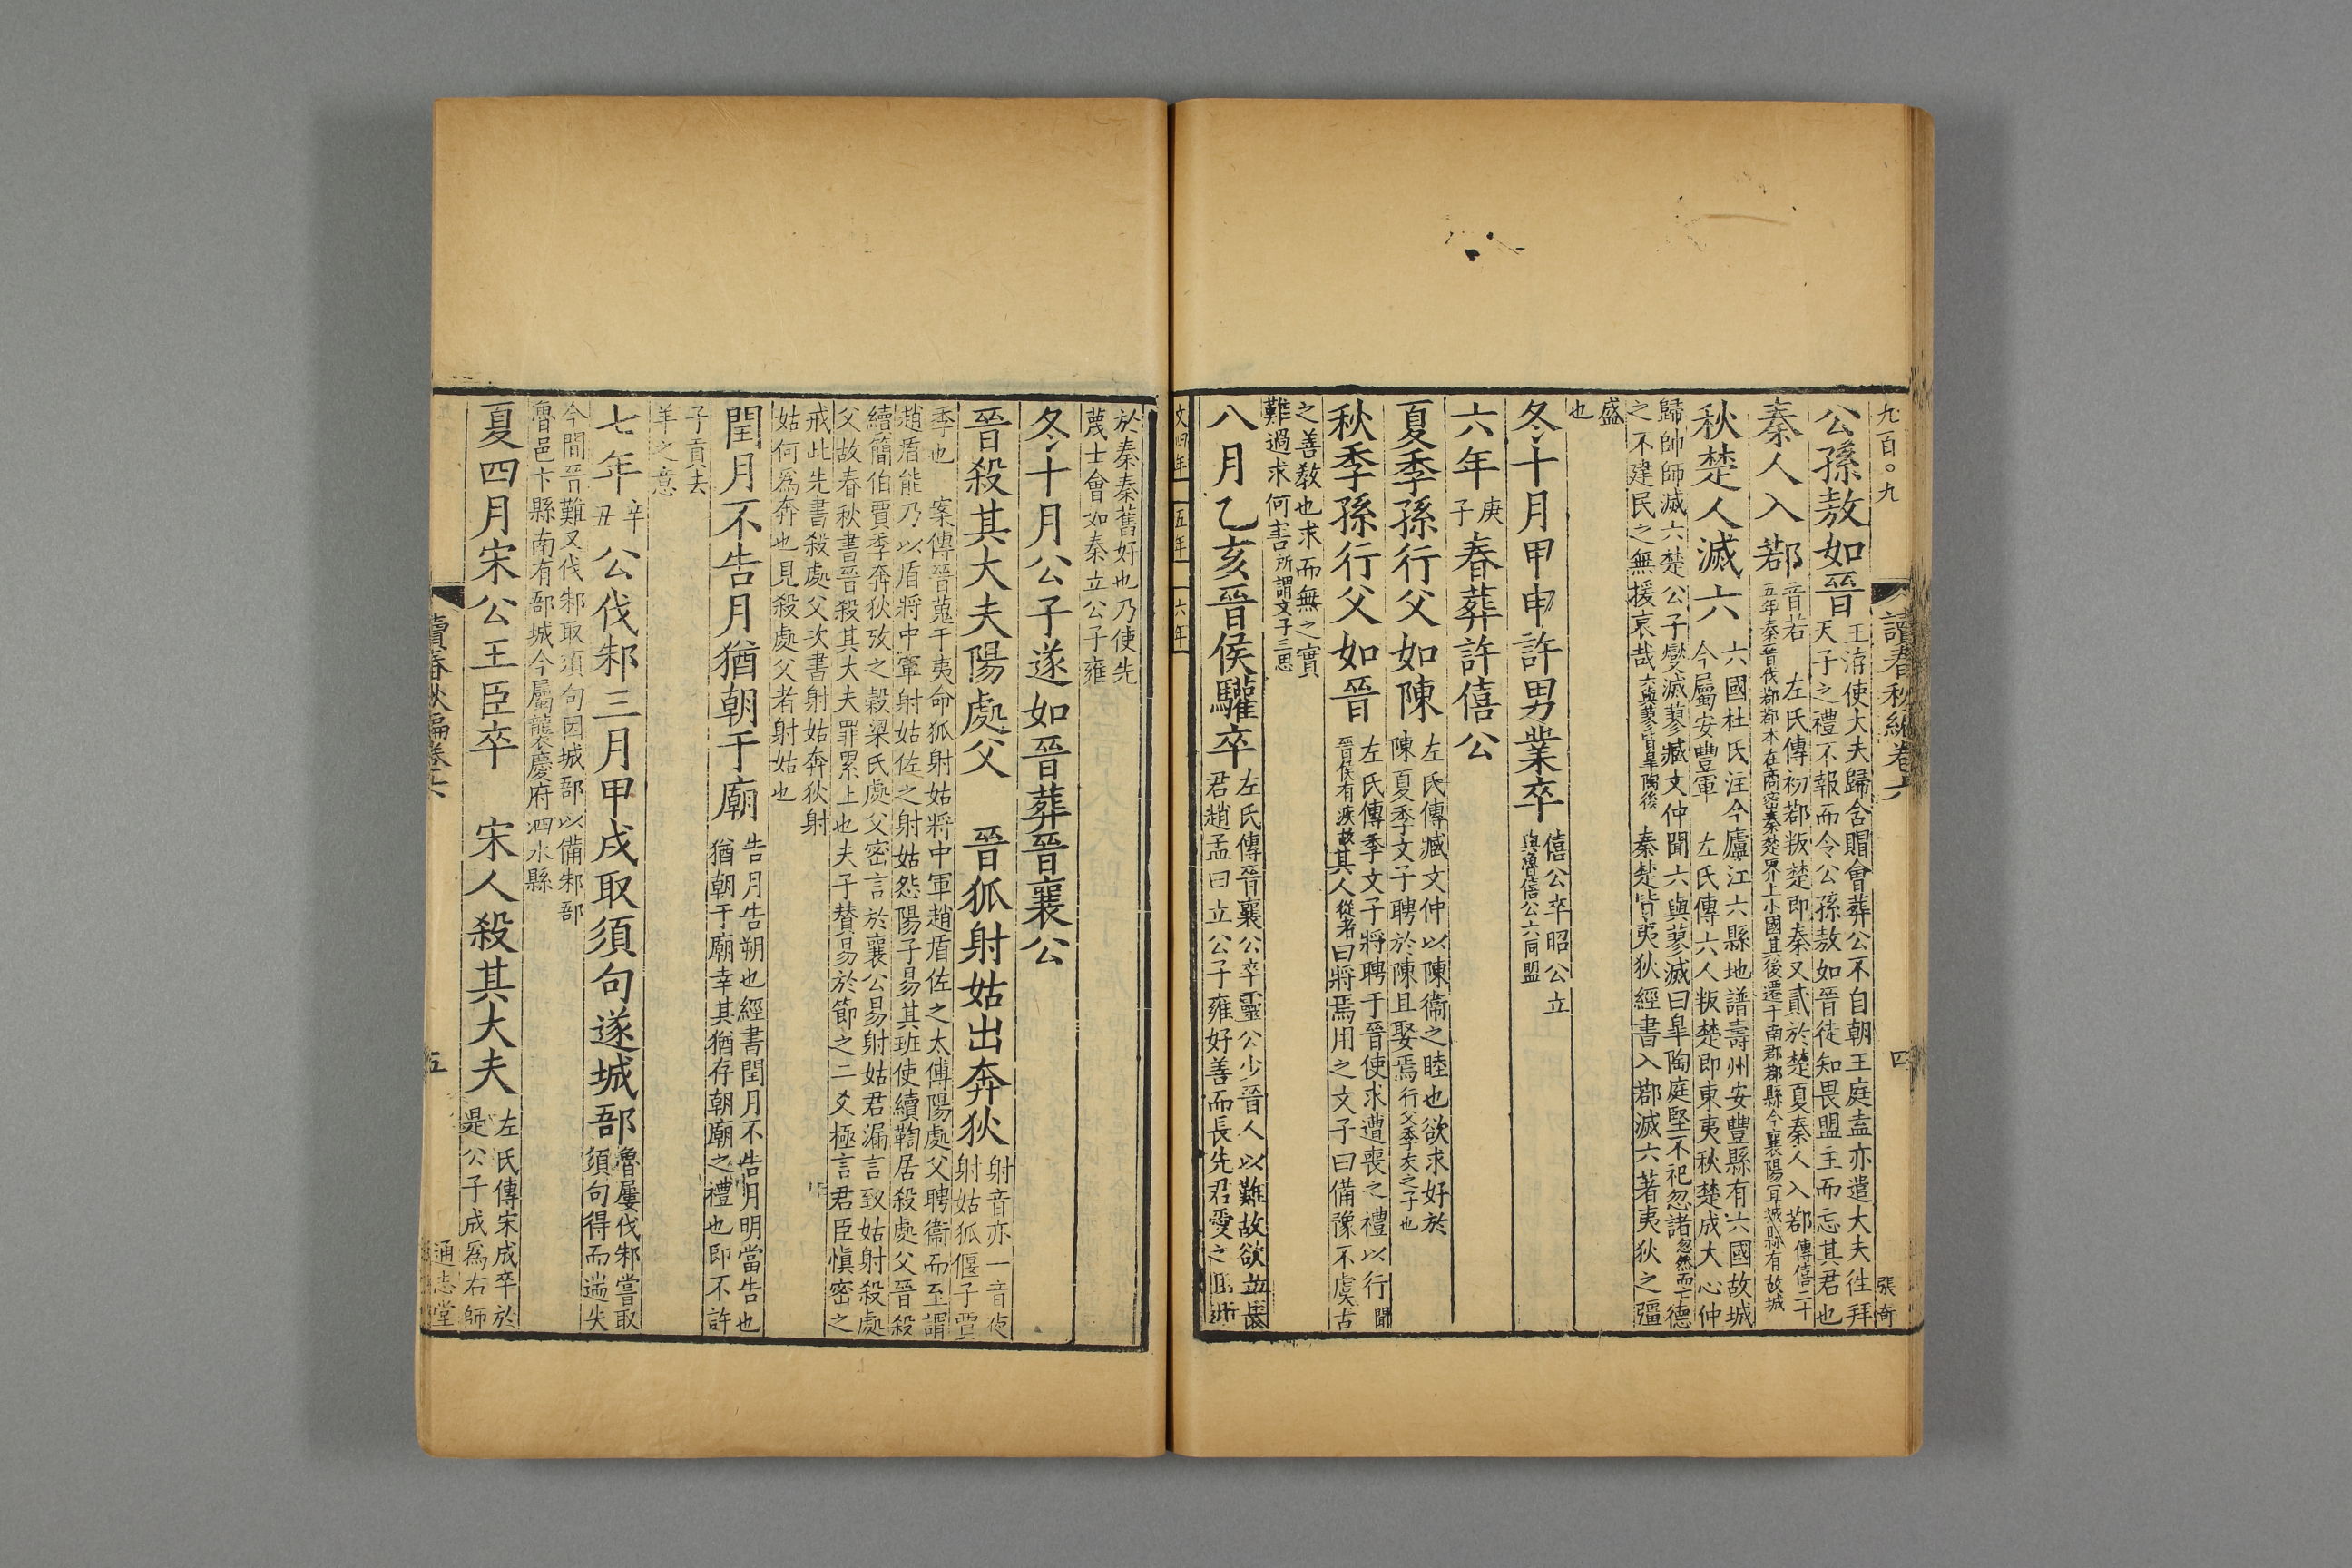 九百〇九
讀春秋編卷六
四
張奇
公孫敖如晉
王洊使大夫歸含賵會葬公不自朝王庭盍亦遣大夫徃拜
天子之禮不報而令公孫敖如晉徒知畏盟主而忘其君也
秦人入鄀
音若 左氏傳初鄀叛楚即秦又貳於楚夏秦人入鄀傳僖二十
五年秦晉伐鄀鄀本在商密秦楚界上小國其後遷于南郡鄀縣今襄陽宜城縣有故城
秋楚人滅六
六國杜氏注今廬江六縣地譜壽州安豐縣有六國故城
今屬安豐軍 左氏傳六人叛楚即東夷秋楚成大心仲
歸帥師滅六楚公子燮滅蓼臧文仲聞六與蓼滅曰皐陶庭堅不祀忽諸忽然而亡德
之不建民之無援哀哉六與蓼皆皐陶後 秦楚皆夷狄經書入鄀滅六著夷狄之彊
盛
也
冬十月甲申許男業卒
僖公卒昭公立
與魯僖公六同盟
六年庚子春葬許僖公
夏季孫行父如陳
左氏傳臧文仲以陳衞之睦也欲求好於
陳夏季文子聘於陳且娶焉行父季友之子也
秋季孫行父如晉
左氏傳季文子將聘于晉使求遭喪之禮以行聞
晉侯有疾故其人從者曰將焉用之文子曰備豫不虞古
之善敎也求而無之實
難過求何害所謂文子三思
八月乙亥晉侯驩卒
左氏傳晉襄公卒靈公少晉人以難故欲立長
君趙孟曰立公子雍好善而長先君愛之且近
文四年 五年 六年
於秦秦舊好也乃使先
蔑士會如秦立公子雍
冬十月公子遂如晉葬晉襄公
晉殺其大夫陽處父 晉狐射姑出奔狄
射音亦一音夜
射姑狐偃子賈
季也 案傳晉蒐于夷命狐射姑將中軍趙盾佐之太傅陽處父聘衞而至謂
趙盾能乃以盾將中軍射姑佐之射姑怨陽子易其班使續鞫居殺處父晉殺
續簡伯賈季奔狄攷之穀梁氏處父密言於襄公易射姑君漏言致姑射殺處
父故春秋書晉殺其大夫罪累上也夫子賛易於節之二爻極言君臣愼密之
戒此先書殺處父次書射姑奔狄射
姑何爲奔也見殺處父者射姑也
閏月不告月猶朝于廟
告月告朔也經書閏月不告月明當告也
猶朝于廟幸其猶存朝廟之禮也即不許
子貢去
羊之意
七年辛丑公伐邾三月甲戌取須句遂城郚
魯屢伐邾嘗取
須句得而遄失
今間晉難又伐邾取須句因城郚以備邾郚
魯邑卞縣南有郚城今屬襲慶府泗水縣
夏四月宋公王臣卒 宋人殺其大夫
左氏傳宋成卒於
是公子成爲右師
讀春秋編卷六
五
通志堂